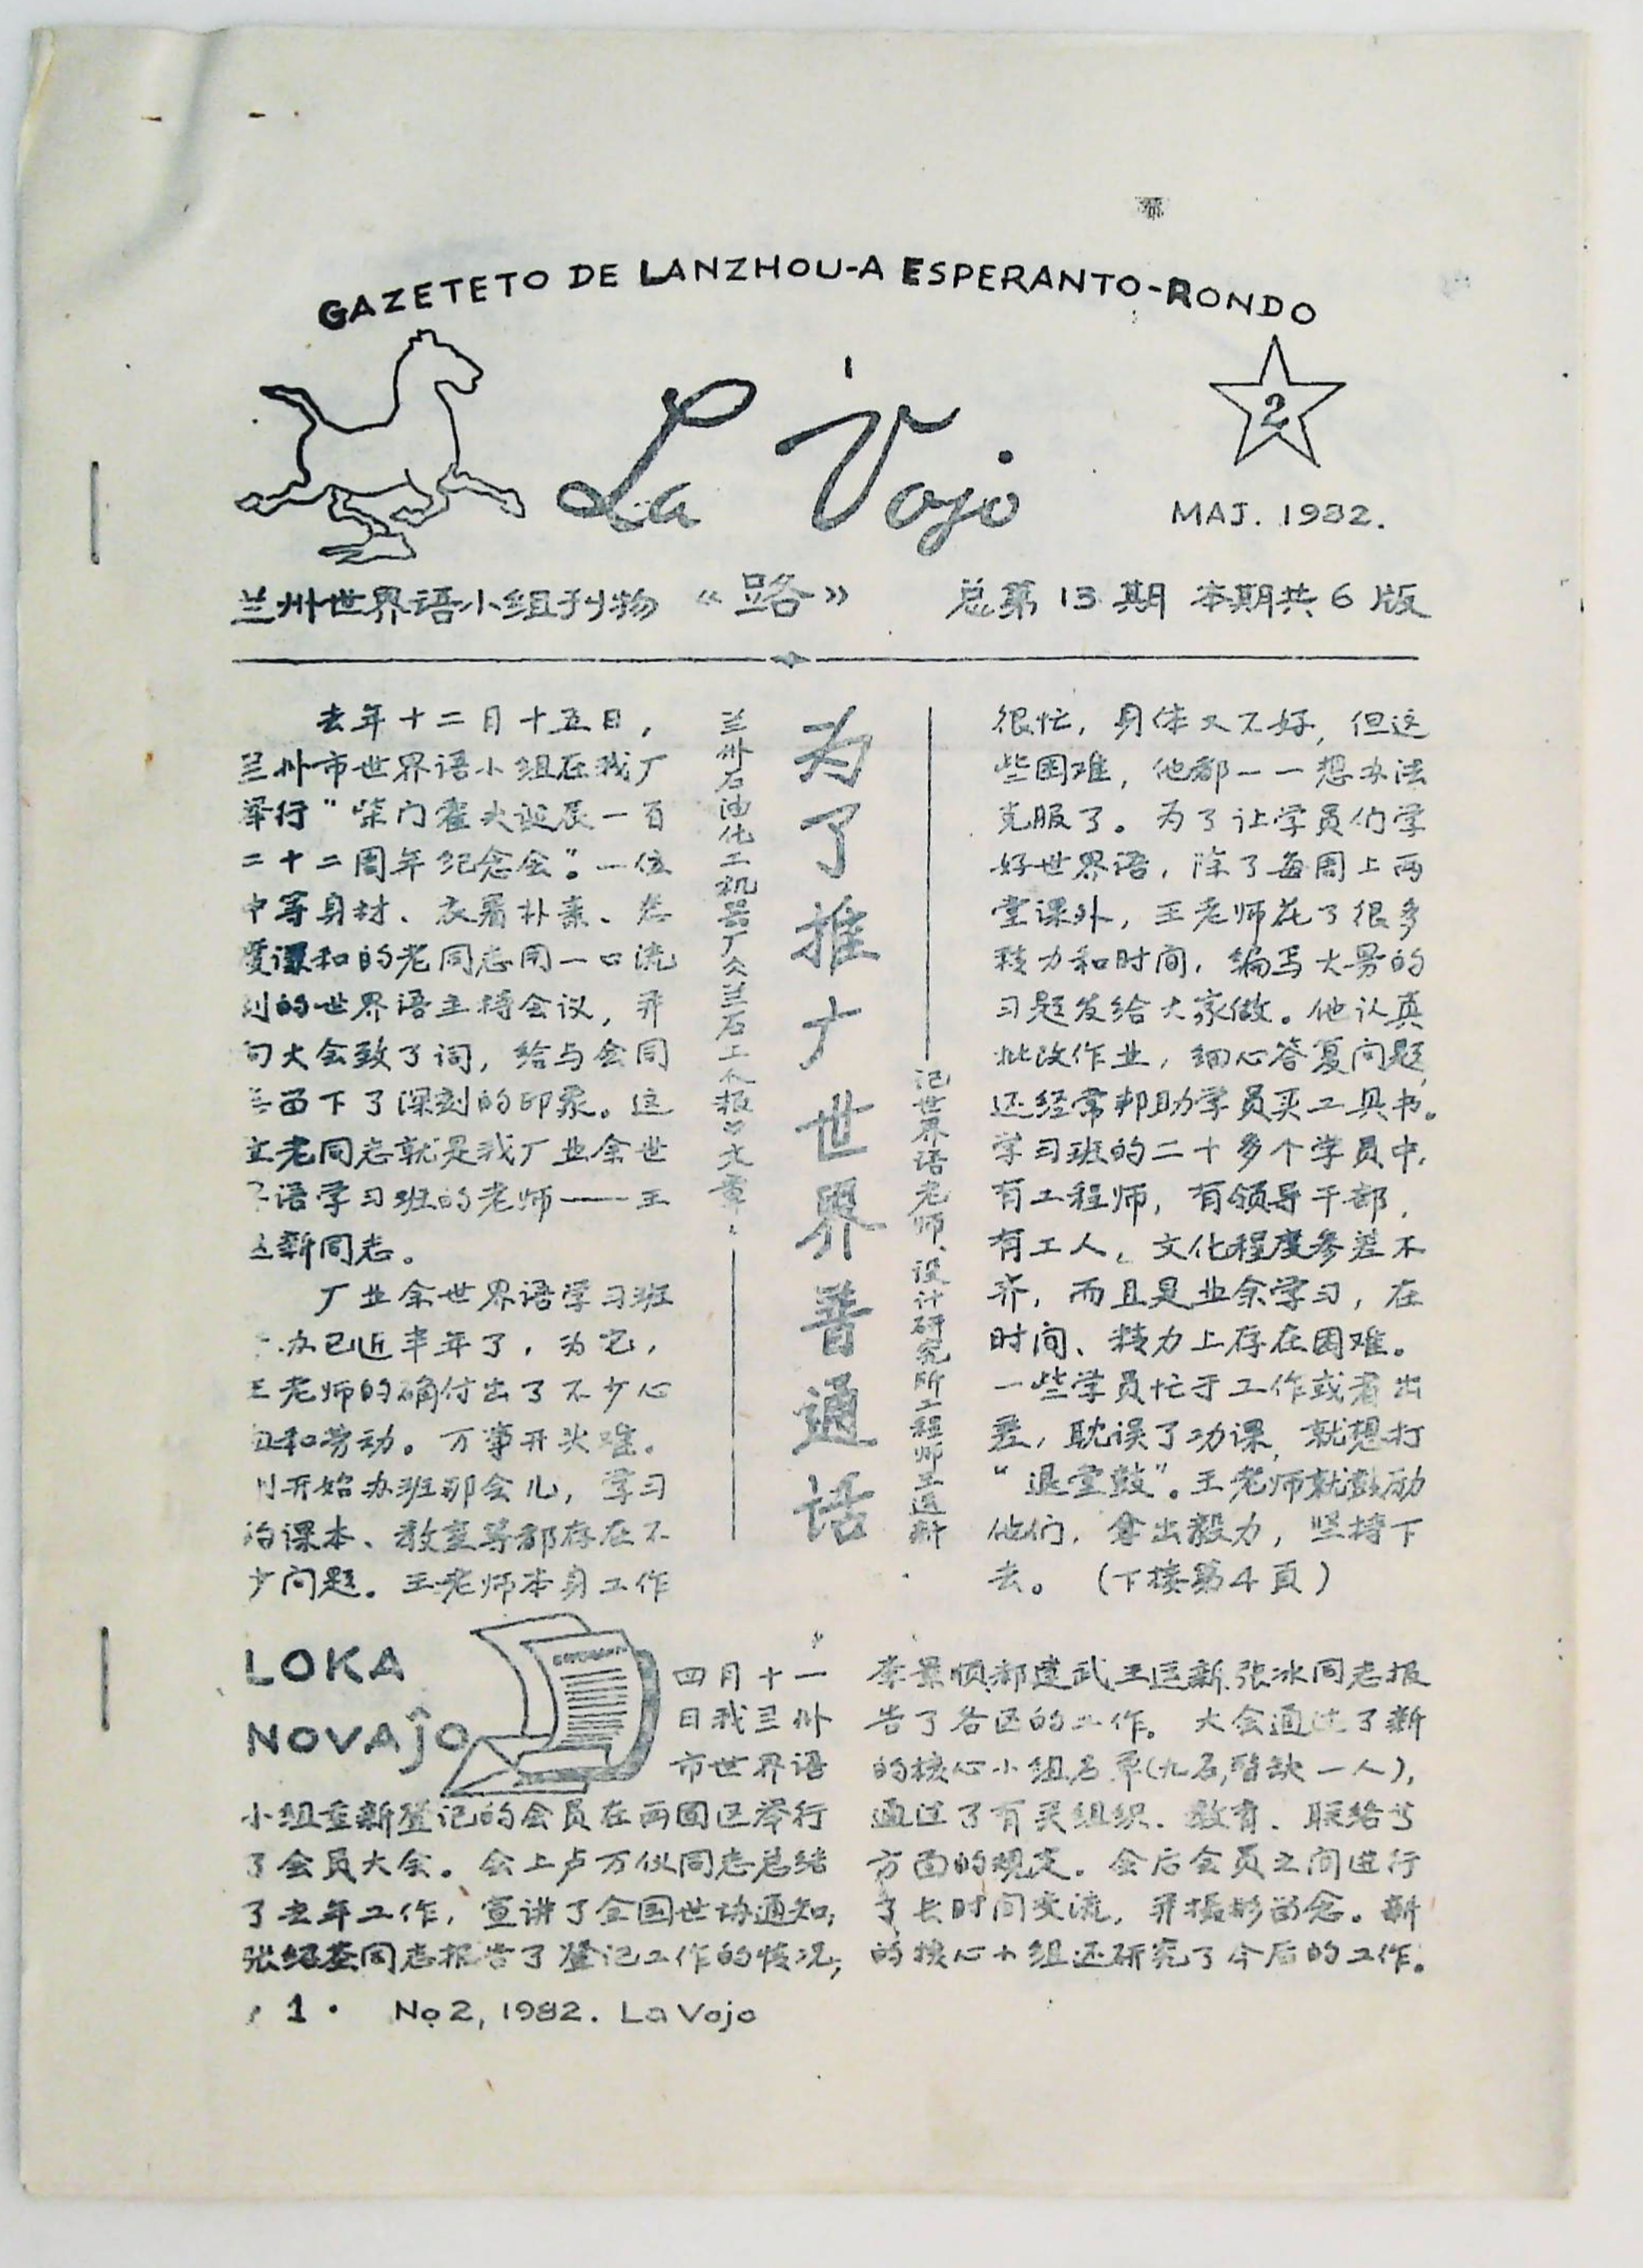 GAZETETO DE LANZHOU-A ESPERANTO-RONDO
La Vojo
2
MAJ. 1982.
兰州世界语小组刊物 《路》 总第13期 本期共6版
去年十二月十五日，
兰州市世界语小组在我厂
举行"柴门霍夫诞辰一百
二十二周年纪念会"。一位
中等身材、衣著朴素、态
度谦和的老同志用一口流
利的世界语主持会议，并
向大会致了词，给与会同
留下了深刻的印象。这
位老同志就是我厂业余世
语学习班的老师——王
新同志。
厂业余世界语学习班
办已近半年了，为它，
王老师的确付出了不少心
血和劳动。万事开头难。
刚开始办班那会儿，学习
的课本、教室等都存在不
少问题。王老师本身工作
兰州石油化工机器厂《兰石工人报》文章：
为了推广世界普通话
记世界语老师、设计研究所工程师王运新
很忙，身体又不好，但这
些困难，他都一一想办法
克服了。为了让学员们学
好世界语，除了每周上两
堂课外，王老师花了很多
精力和时间，编写大量的
习题发给大家做。他认真
批改作业，细心答复问题，
还经常邦助学员买工具书。
学习班的二十多个学员中，
有工程师，有领导干部，
有工人。文化程度参差不
齐，而且是业余学习，在
时间、精力上存在困难。
一些学员忙于工作或者出
差，耽误了功课，就想打
"退堂鼓"。王老师就鼓励
他们，拿出毅力，坚持下
去。（下接第4頁）
LOKA
NOVAĴO
四月十一
日我兰州
市世界语
小组重新登记的会员在两个区举行
了会员大会。会上卢万仪同志总结
了去年工作，宣讲了全国世协通知；
同志报告了登记工作的情况；
李景顺、郝建武、王运新、张冰同志报
告了各区的工作。大会通过了新
的核心小组名单(九名,暂缺一人)，
通过了有关组织、教育、联络等
方面的规定。会后会员之间进行
了长时间交流，并摄影留念。新
的核心小组还研究了今后的工作。
· 1 · No2, 1982. La Vojo